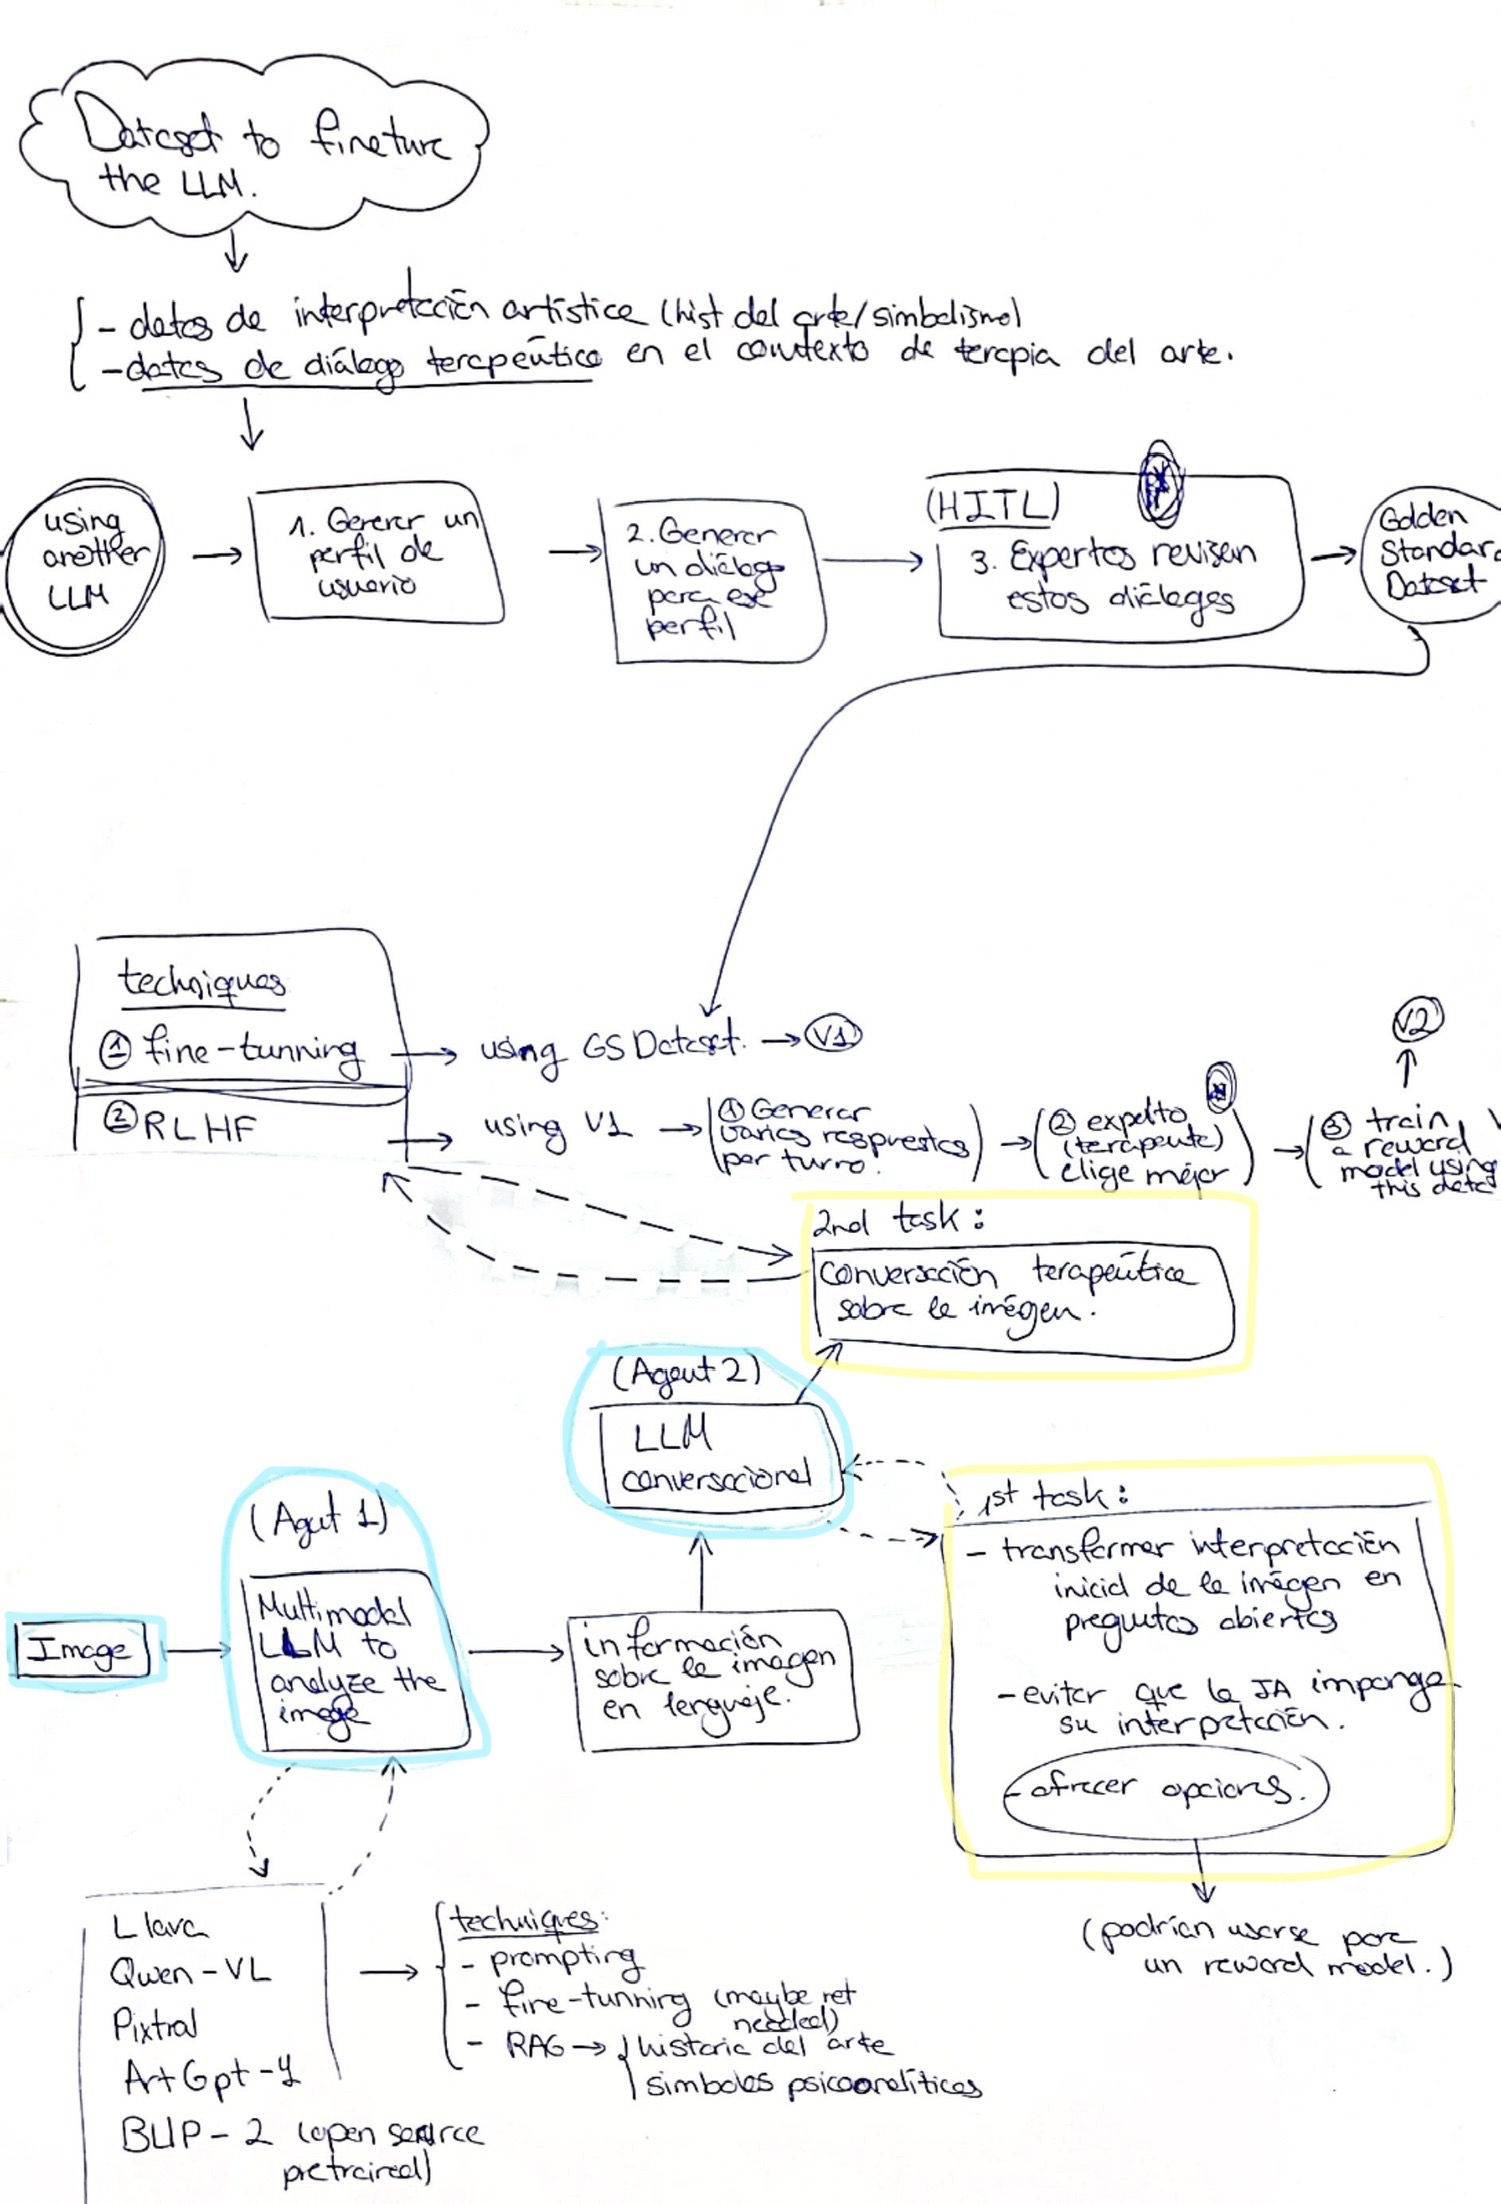 Dataset to finetune
the LLM.
- datos de interpretación artística (hist del arte/simbolismo)
- datos de diálogo terapeútico en el contexto de terapia del arte.
using
another
LLM
1. Generar un
perfil de
usuario
2. Generar
un diálogo
para ese
perfil
(HITL)
3. Expertos revisan
estos diálogos
Golden
Standar
Dataset
techniques
① fine-tunning
using GS Dataset. → V1
V2
② RLHF
using V1
① Generar
varias respuestas
por turno.
② experto
(terapeuta)
elige mejor
③ train
a reward
model using
this data
2nd task:
conversación terapeútica
sobre la imágen.
(Agent 2)
LLM
conversacional
1st task:
- transformar interpretación
inicial de la imágen en
preguntas abiertas
- evitar que la IA imponga
su interpretación.
- ofrecer opciones.
(podrían usarse para
un reward model.)
(Agent 1)
Image
Multimodal
LLM to
analyze the
image
información
sobre la imagen
en lenguaje.
Llava
Qwen-VL
Pixtral
ArtGpt-4
BLIP-2 (open source
pretrained)
techniques:
- prompting
- fine-tunning (maybe not
needed)
- RAG → historia del arte
simbolos psicoanalíticos